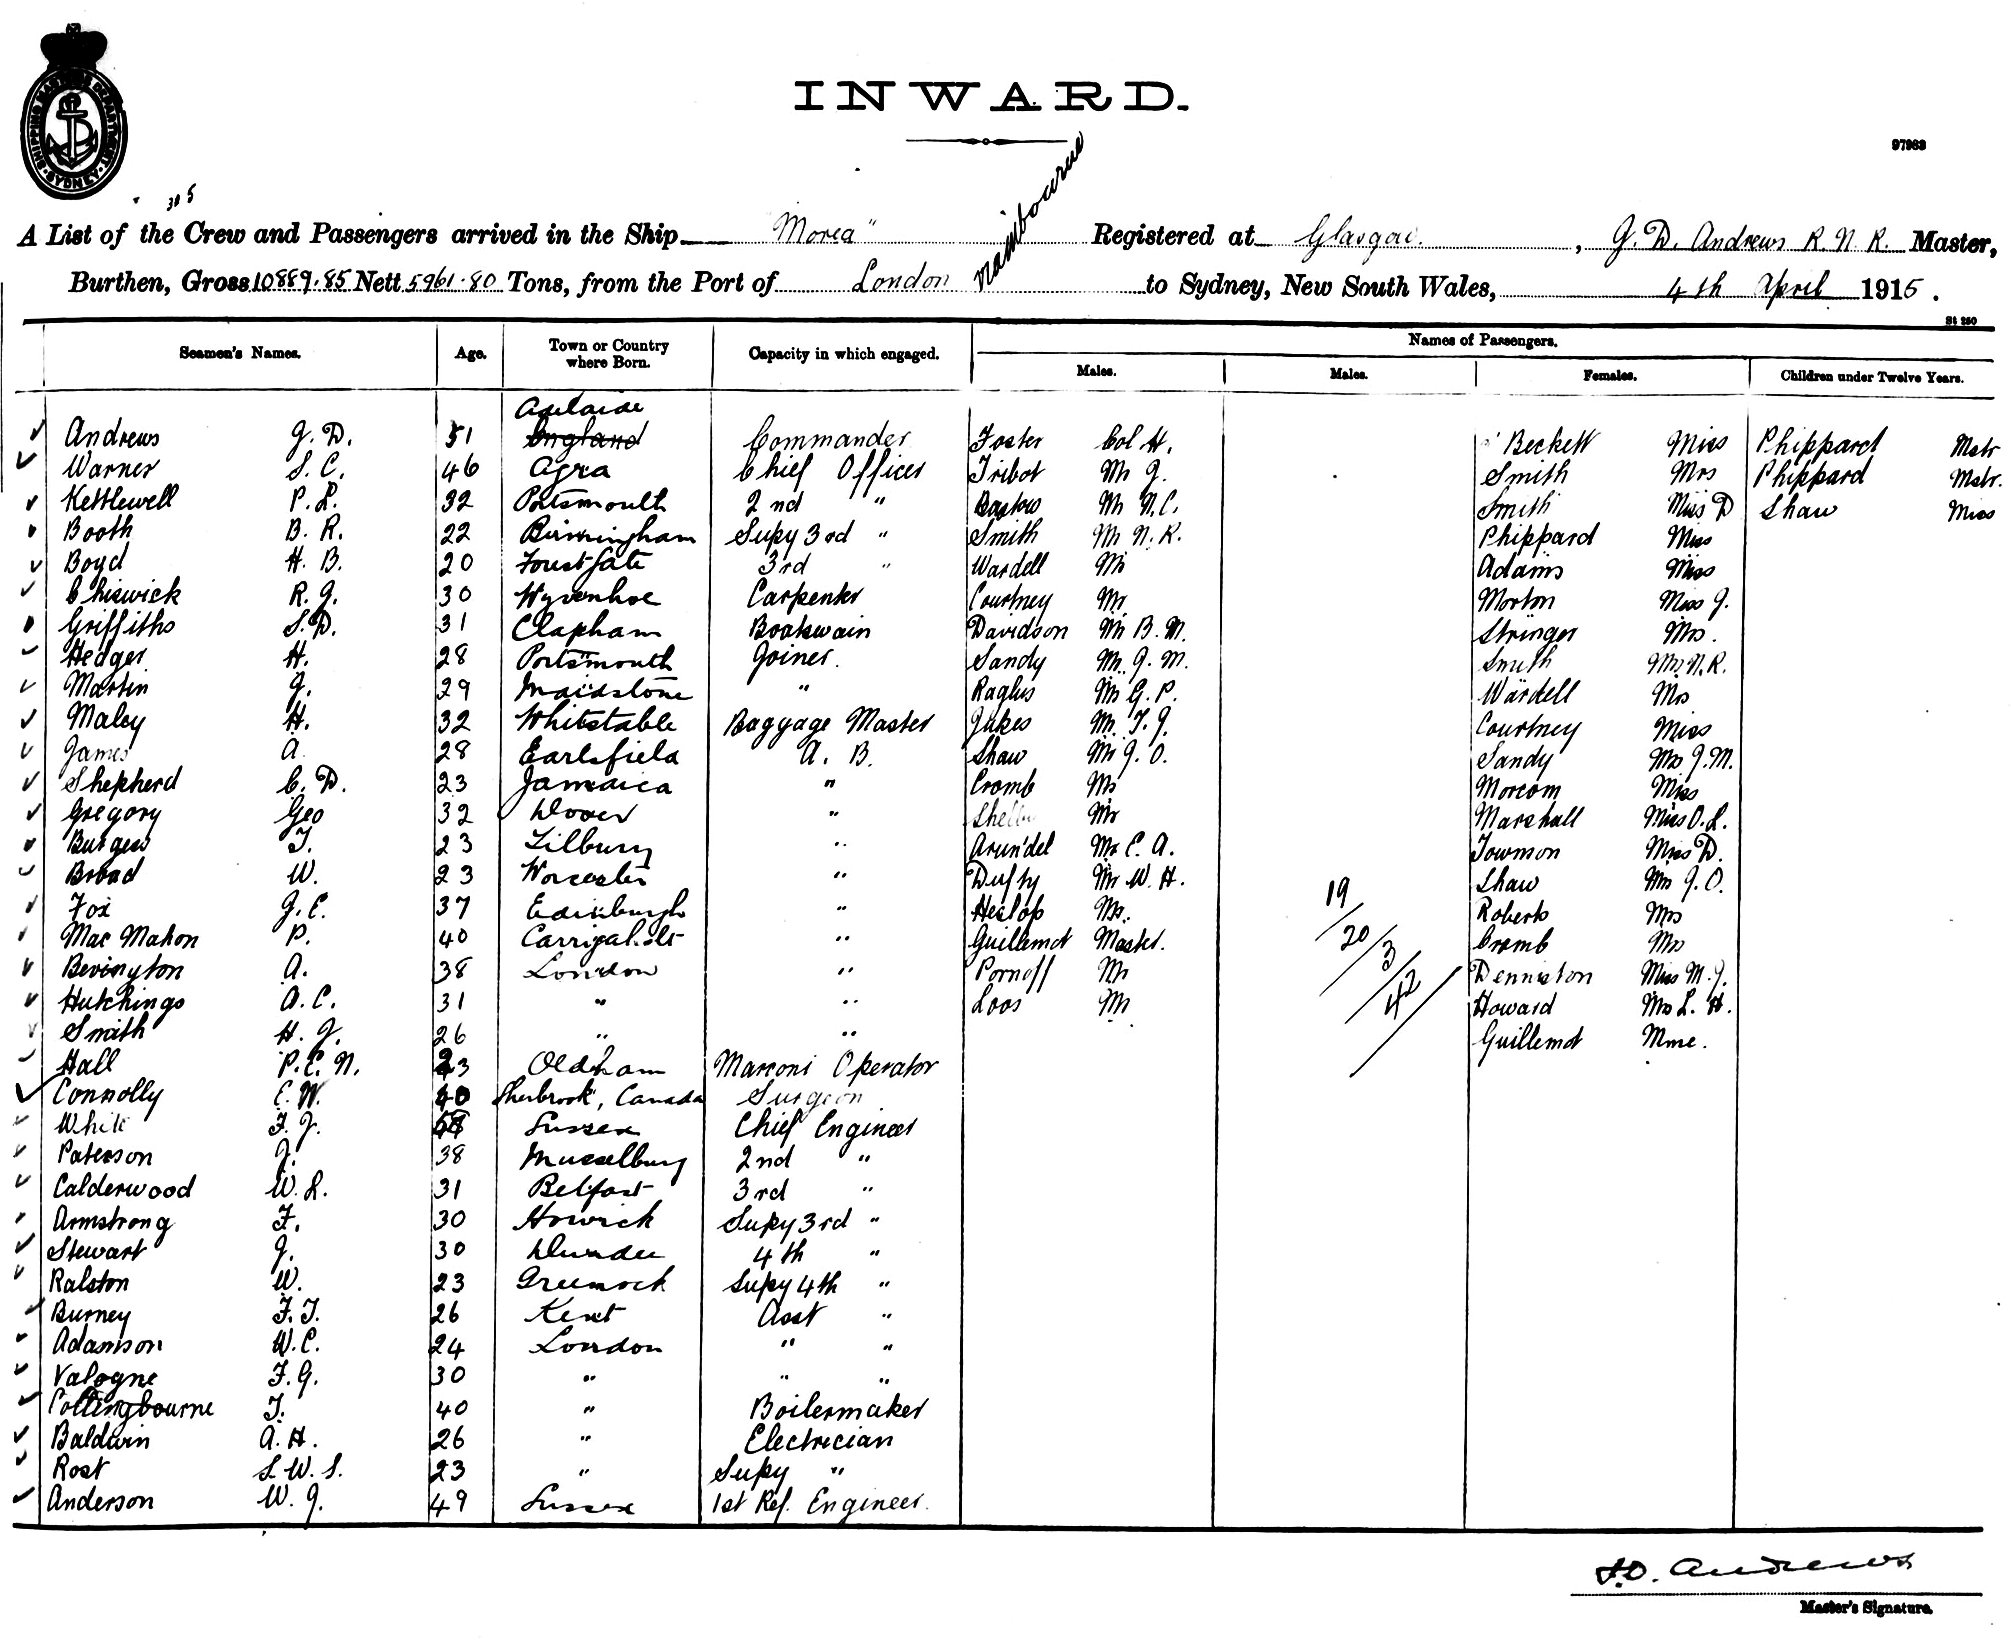 SHIPPING MASTER'S DEPARTMENT
SYDNEY
INWARD.
97963
A List of the Crew and Passengers arrived in the Ship Morea" Registered at Glasgow. , G. D. Andrews R. N. R. Master,
Burthen, Gross 10889.85 Nett 5961.80 Tons, from the Port of London to Sydney, New South Wales, 4th April 1915.
St 250
Seamen's Names. Age. Town or Country where Born. Capacity in which engaged. Names of Passengers.
Males. Males. Females. Children under Twelve Years.
Adelaide
Andrews G. D. 51 England Commander Foster Col H. Beckett Miss Phippard Mstr
Warner S. C. 46 Agra Chief Officer Tribot Mr G. Smith Mrs Phippard Mstr.
Kettlewell P. L. 32 Portsmouth 2nd " Mr N. C. Smith Miss D Shaw Miss
Booth B. R. 22 Birmingham Supy 3rd " Smith Mr N. R. Phippard Miss
Boyd H. B. 20 Forest Gate 3rd " Wardell Mr Adams Miss
Chiswick R. G. 30 Wyvenhoe Carpenter Courtney Mr Morton Miss J.
Griffiths S. D. 31 Clapham Boatswain Davidson Mr B. M. Stringer Mrs.
Hedger H. 28 Portsmouth Joiner. Sandy Mr J. M. Smith Mrs N. R.
Martin J. 29 Maidstone " Mr G. P. Wardell Mrs
Maley H. 32 Whitstable Baggage Master Jukes Mr T. J. Courtney Miss
James A. 28 Earlsfield A. B. Shaw Mr J. O. Sandy Mrs J. M.
Shepherd C. D. 23 Jamaica " Cromb Mr Morcom Miss
Gregory Geo 32 Dover " Mr Marshall Miss O. L.
Burgess T. 23 Tilbury " Arundel Mr E. A. Towmon Miss D.
Broad W. 23 Worcester " Dufty Mr W. H. Shaw Mrs J. O.
19
Fox J. C. 37 Edinburgh " Heslop Mr. Roberts Mrs
Mac Mahon P. 40 Carrigaholt " Guillemot Master. 20 Cromb Mrs
Bevington A. 38 London " Pornoff Mr 3 Denniston Miss M. J.
Hutchings A. C. 31 " " Loos Mr 42 Howard Mrs L. H.
Smith H. J. 26 " " Guillemot Mme.
Hall P. E. N. 23 Oldham Marconi Operator
Connolly E. W. 40 Sherbrook, Canada Surgeon
White F. J. Sussex Chief Engineer
Paterson J. 38 Musselburg 2nd "
Calderwood W. L. 31 Belfast 3rd "
Armstrong F. 30 Howick Supy 3rd "
Stewart J. 30 Dundee 4th "
Ralston W. 23 Greenock Supy 4th "
Burney F. T. 26 Kent Asst "
Adamson W. C. 24 London " "
Valogne F. G. 30 " " "
Collingbourne T. 40 " Boilermaker
Baldwin A. H. 26 " Electrician
Rost S. W. S. 23 " Supy "
Anderson W. J. 49 Sussex 1st Ref. Engineer.
G. D. Andrews
Master's Signature.